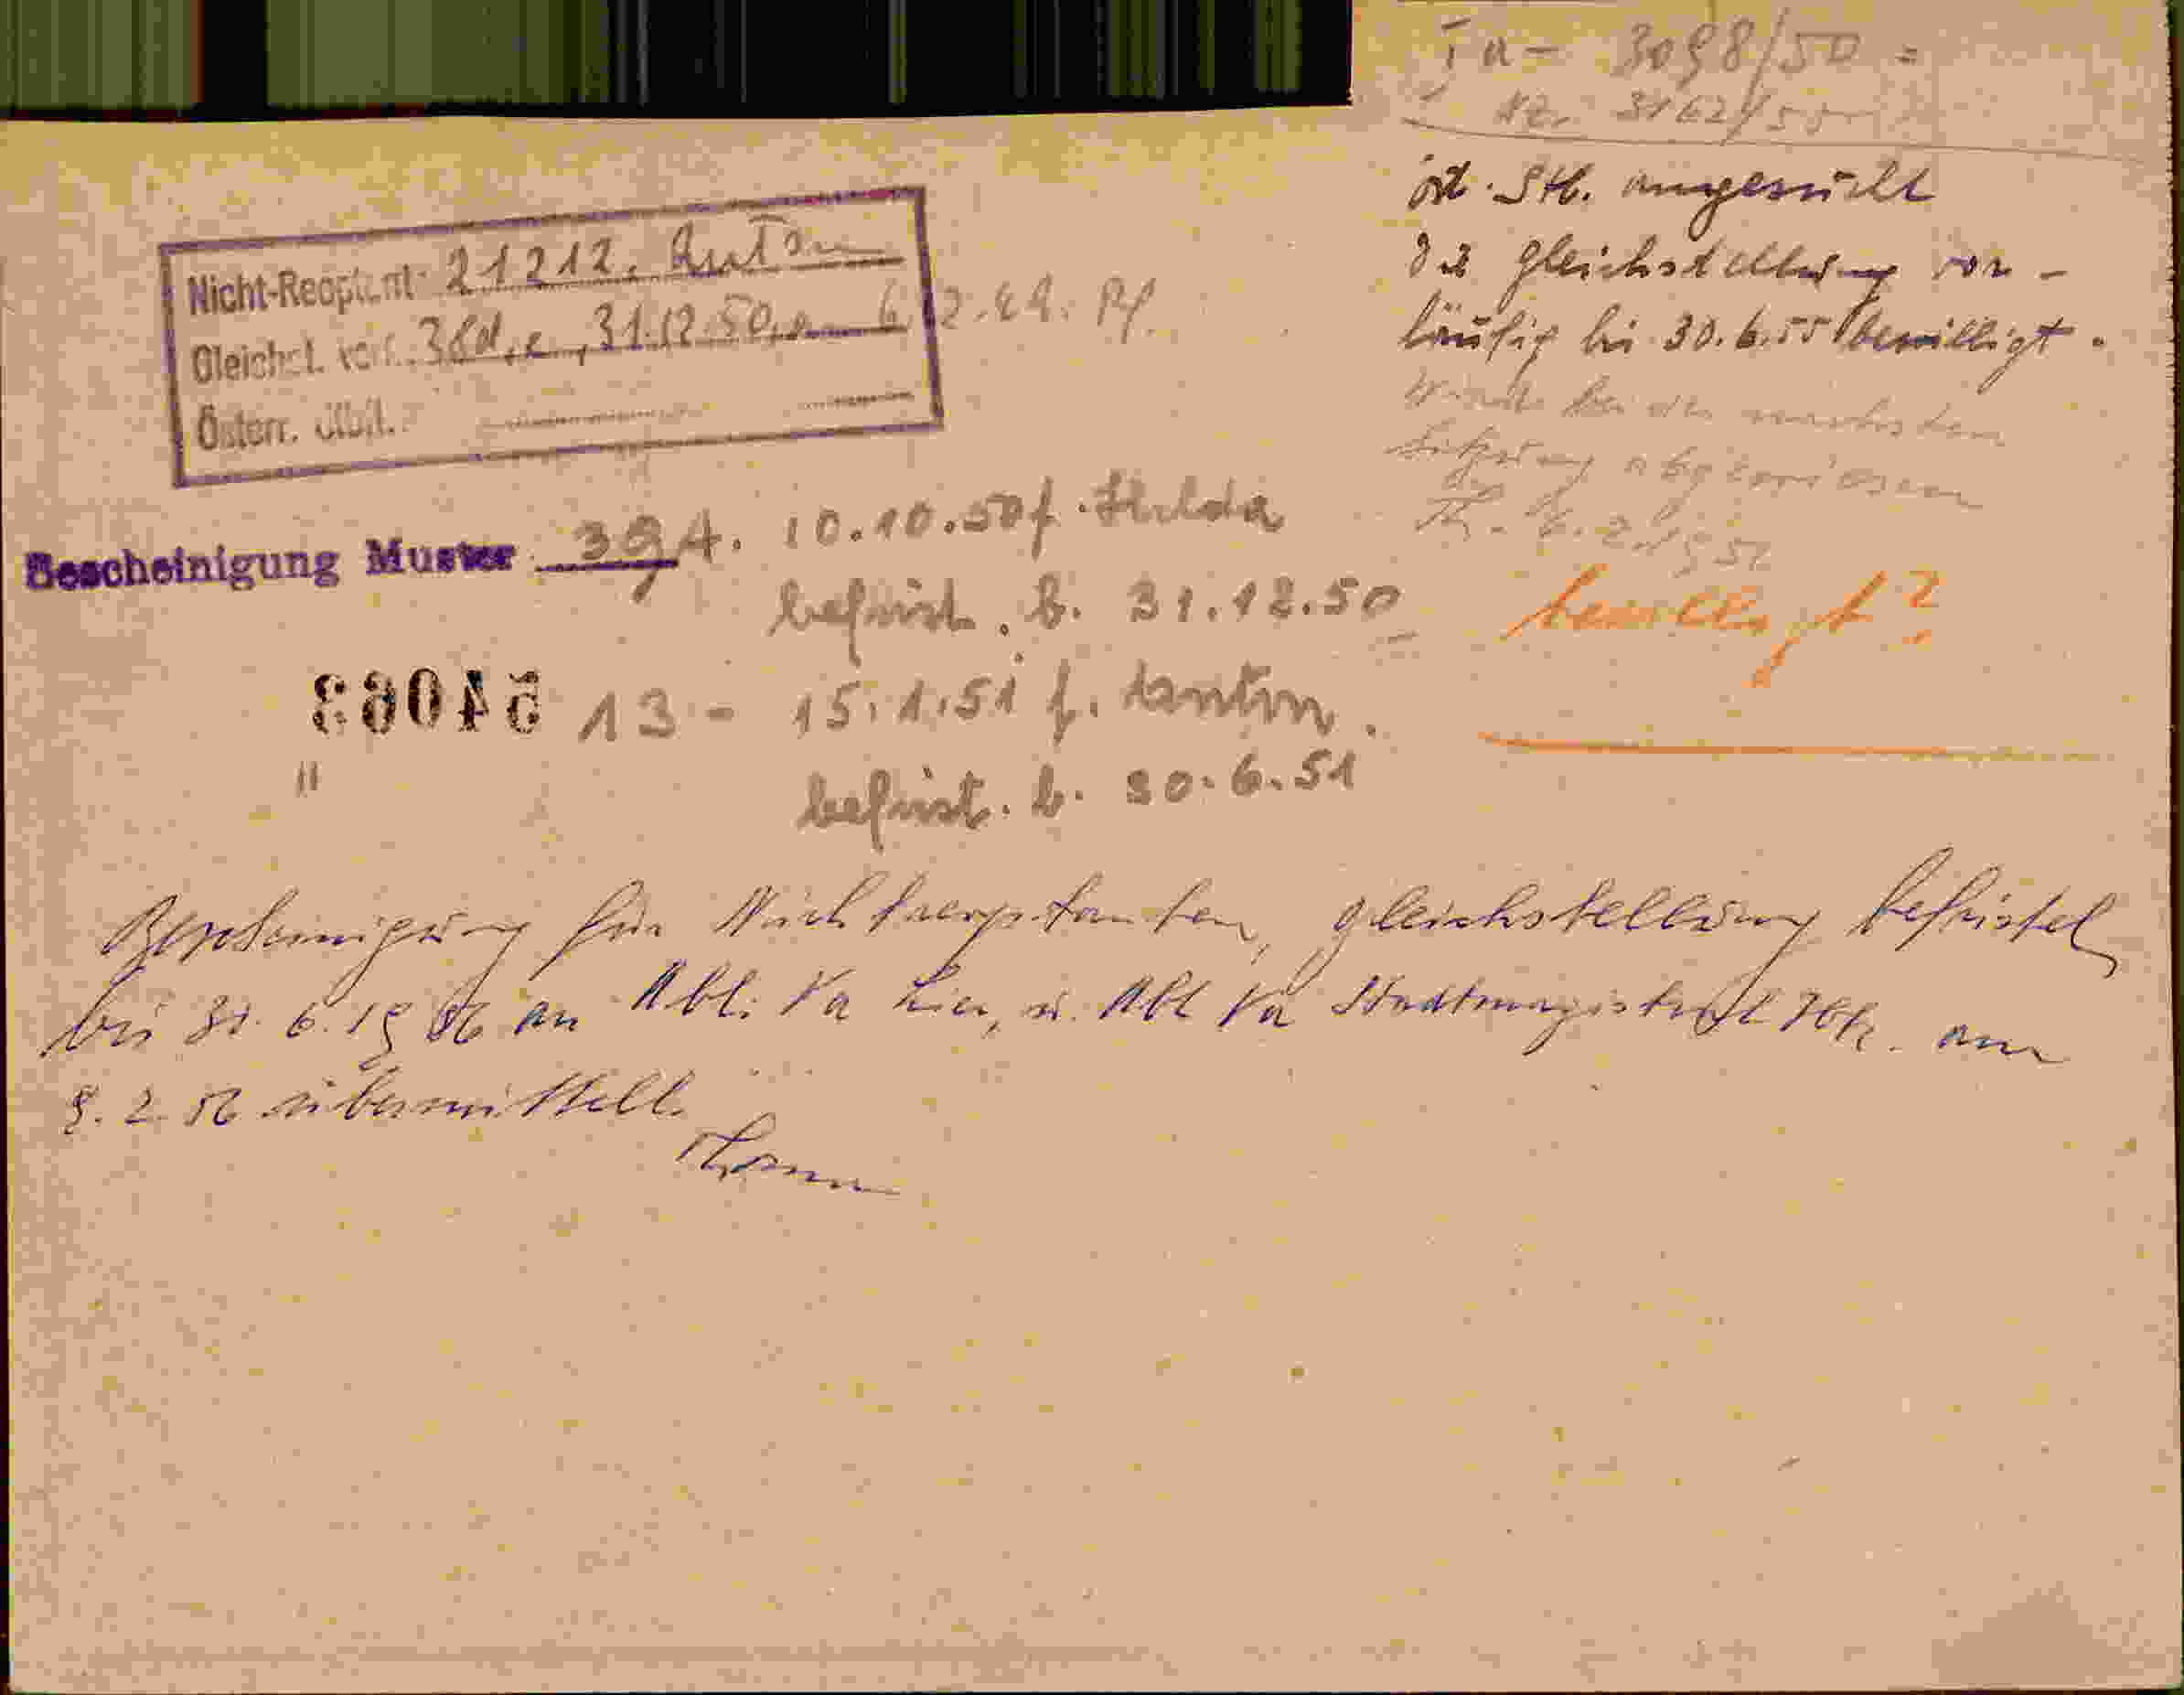 Ia - 3098/50 =
Nr. 3162/55
öst. Stb. angesucht
die Gleichstellung vor-
läufig bis 30.6.55 bewilligt.
Wurde bei der nächsten
Sitzung abgewiesen
Th. 6.2.1956
bewilligt?
Nicht-Reoptant: 21212. Anton
Gleichst. vorl. 38d, e, 31.12.50, 6.12.49. Pf.
Österr. Stbft.
Bescheinigung Muster 394. 10.10.50 f. Hulda
befrist. b. 31.12.50
54063 13 - 15.1.51 f. Anton.
" befrist. b. 30.6.51
Bescheinigung für Nichtreoptanten, Gleichstellung befristet
bis 31.6.1956 an Abt. Va hier, u. Abt Va Stadtmagistrat Ibk. am
9.2.56 übermittelt.
Thoma